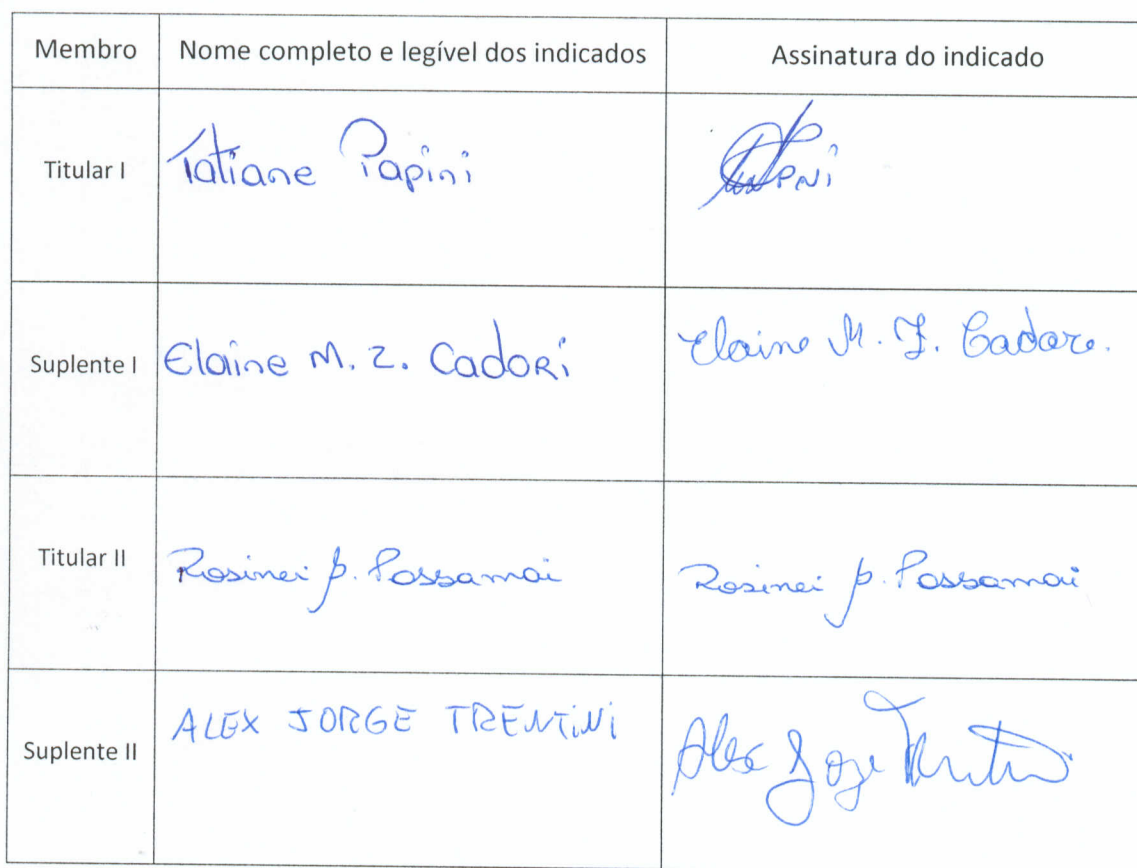 Membro Nome completo e legível dos indicados Assinatura do indicado
Titular I Tatiane Papini
Suplente I Elaine M. Z. Cadori Elaine M. Z. Cadore.
Titular II Rosinei p. Possamai Rosinei p. Possamai
Suplente II ALEX JORGE TRENTiNi Alex Jorge